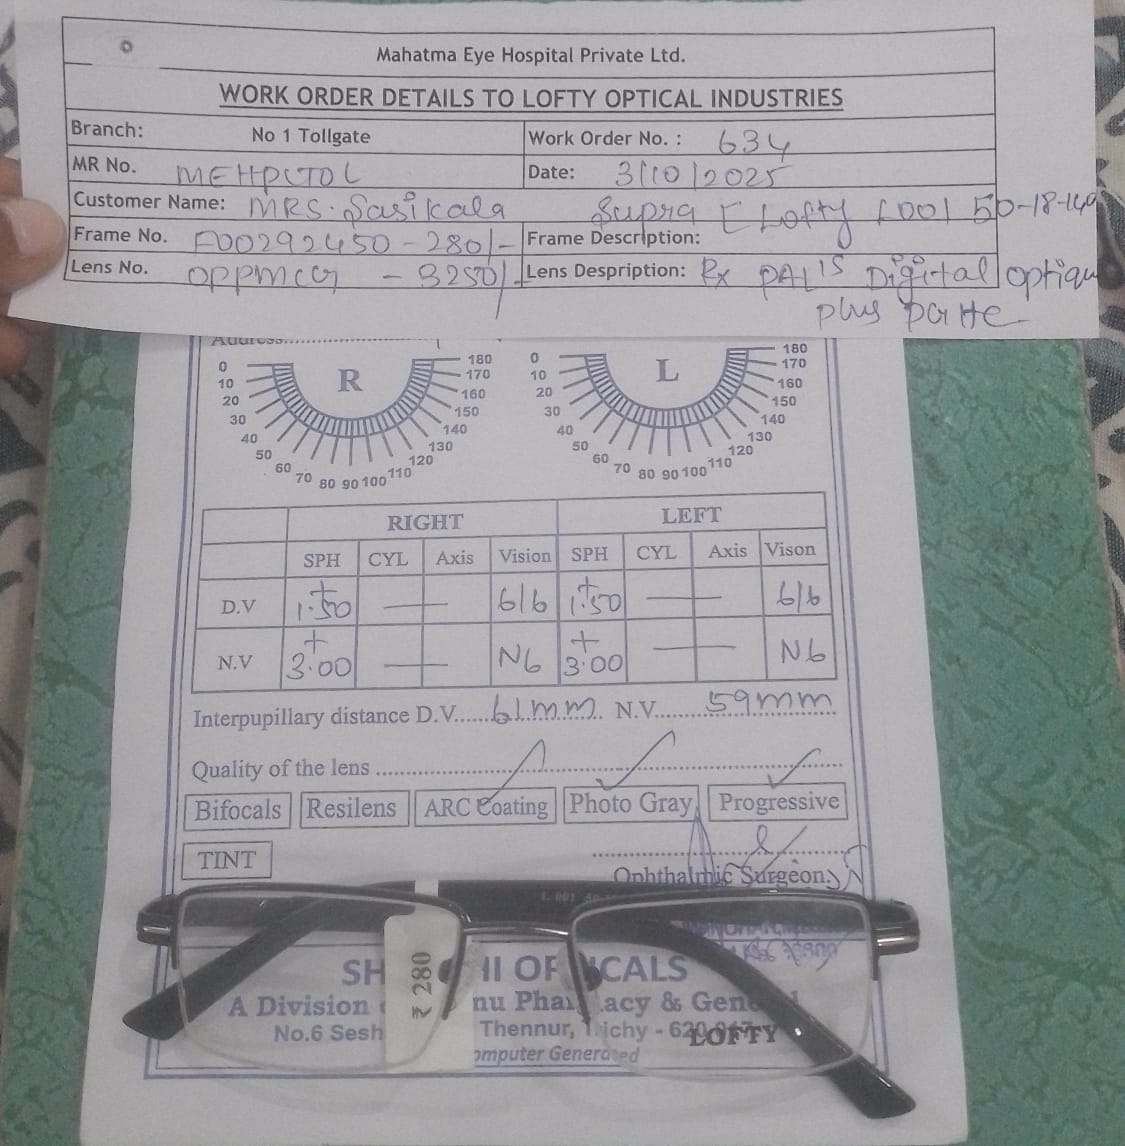 Mahatma Eye Hospital Private Ltd.
WORK ORDER DETAILS TO LOFTY OPTICAL INDUSTRIES
Branch: No 1 Tollgate Work Order No. : 634
MR No. MEHPCTOL Date: 3/10/2025
Customer Name: MRS. Sasikala Supra [ Lofty L001 50-18-140
Frame No. F00292450 - 280/- Frame Description:
Lens No. OPPMCG - 3250/- Lens Despription: Rx PAL'S Digital optique
plus
Address
R L
0 10 20 30 40 50 60 70 80 90 100 110 120 130 140 150 160 170 180
0 10 20 30 40 50 60 70 80 90 100 110 120 130 140 150 160 170 180
RIGHT LEFT
SPH CYL Axis Vision SPH CYL Axis Vison
D.V +1.50 — — 6/6 +1.50 — — 6/6
N.V +3.00 — — N6 +3.00 — — N6
Interpupillary distance D.V......61mm. N.V...........59mm
Quality of the lens
Bifocals Resilens ARC Coating Photo Gray Progressive
TINT
Ophthalmic Surgeon
L 001
₹ 280
SH II OP ICALS
A Division nu Pha acy & Gen
No.6 Sesh Thennur, Trichy - 620
LOFTY
omputer Generated